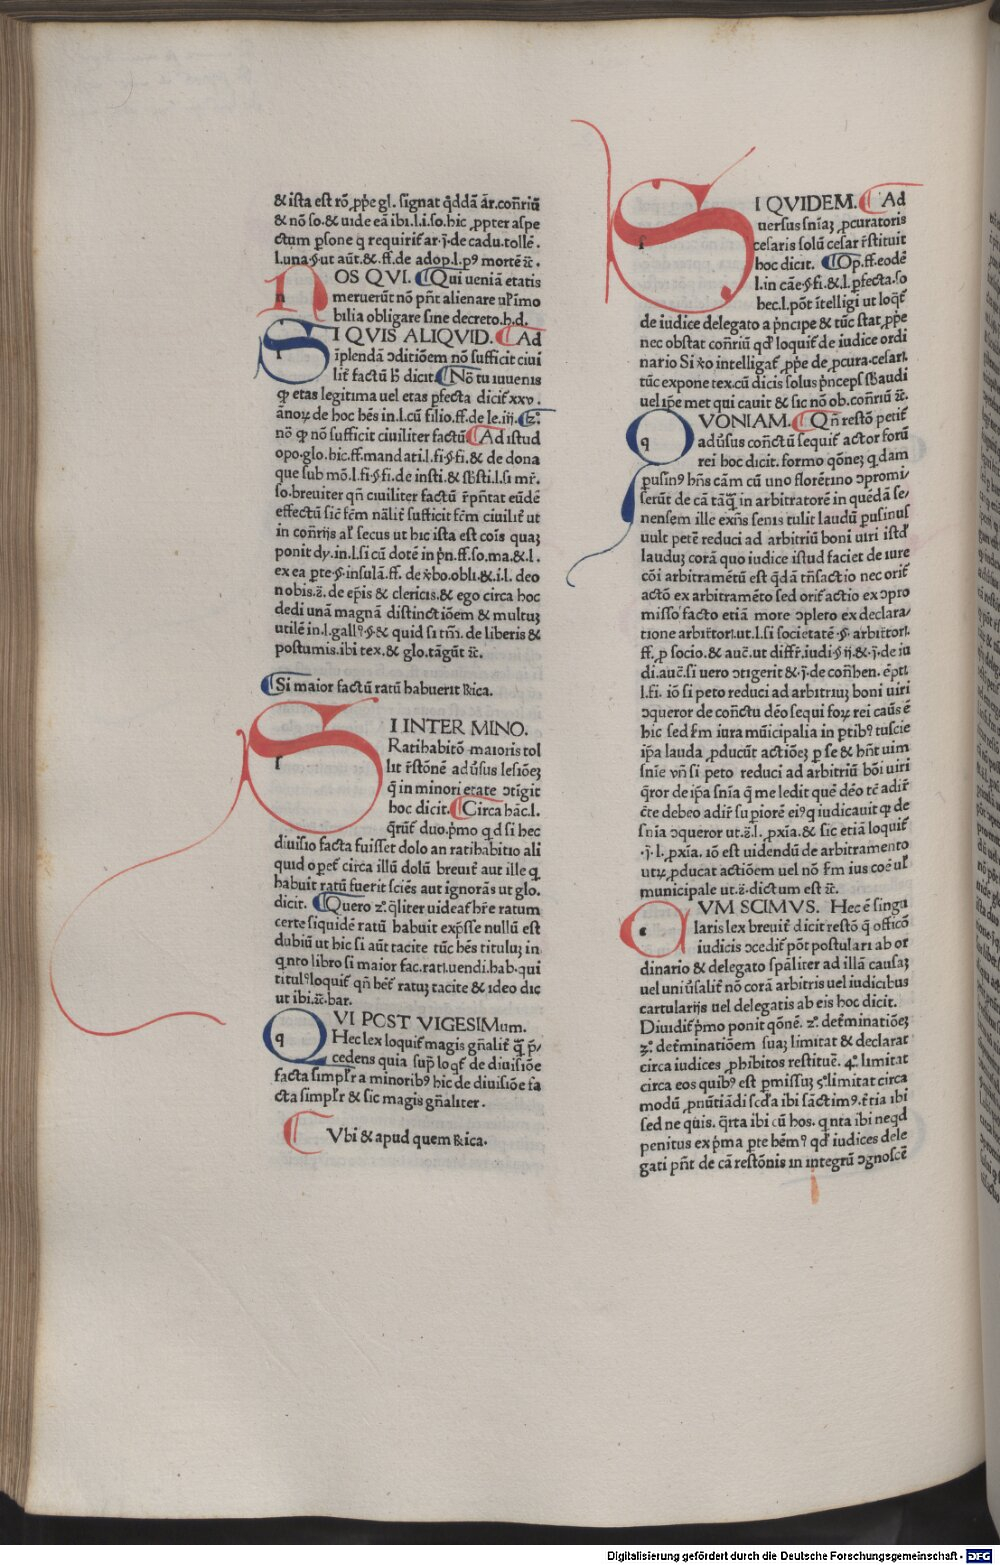 & ista est rõ ꝓp̃e gl. signat q̃ddã ãr.con̄riũ
& nõ so.& uide eã ibi.l.i.so.hic ,ppter aspe
ctum p̱sone q̃ requirit̃ ar.j̃.de cadu.tollẽ.
l.una.§.ut aũt.& .ff.de adop.l.pꝰ mortẽ ⁊c̃.
nOS QVI. ¶Qui ueniã etatis
meruerũt nõ pñt alienare ul̃ imo
bilia obligare sine decreto.h.d.
sI QVIS ALIQVID. ¶Ad
ĩplendã ↄditiõem nõ sufficit ciui
lit̃ factũ h̃ dicit.¶Nõ tu iuuenis
ꝙ etas legitima uel etas p̱fecta dicit̃ xxv.
ãnoꝝ de hoc hẽs in.l.cũ filio.ff.de le.iij.¶2°.
nõ ꝙ nõ sufficit ciuiliter factũ ¶Ad istud
opo.glo.hic.ff.mandati.l.fi.§.fi.& de dona
que sub mõ.l.fi.§.fi.de insti.& s̃bsti.l.si mr̃.
so.breuiter qñ ciuiliter factũ r̃pñtat eũdẽ
effectũ sic̃ fẽm nãlit̃ sufficit fẽm ciuilit̃ ut
in con̄rijs al̃ secus ut hic ista est cõis quaȝ
ponit dy.in.l.si cũ dotẽ in p̃n.ff.so.ma.&.l.
ex ea p̱te.§.insulã.ff. de v̉bo.obli.&.i.l. deo
nobis.z̃. de ep̃is & clericis.& ego circa hoc
dedi unã magnã distinctiõem & multuȝ
utilẽ in.l.gallꝰ.§.& quid si tm̃. de liberis &
postumis.ibi tex.& glo.tãgũt ⁊c̃.
¶Si maior factũ ratũ habuerit Rica.
sI INTER MINO.
Ratihabitõ maioris tol
lit r̃stõnẽ adũsus lesiõeȝ
q̃ in minori etate ↄtigit
hoc dicit.¶Circa hãc.l.
q̃rũt̃ duo.p̃mo q d si hec
diuisio facta fuisset dolo an ratihabitio ali
quid opet̃ circa illũ dolũ breuit̃ aut ille q̃
habuit ratũ fuerit sciẽs aut ignorãs ut glo.
dicit. ¶Quero 2°.q̃liter uideat̃ hr̃e ratum
certe siquidẽ ratũ habuit exp̃sse nullũ est
dubiũ ut hic si aũt tacite tũc hẽs tituluȝ in
q̃nto libro si maior fac.rati.uendi.hab.qui
titulꝰ loquit̃ qñ hẽt̃ ratuȝ tacite & ideo dic
ut ibi.⁊c̃.bar.
qVI POST VIGESIMum.
Hec lex loquit̃ magis gñalit̃ q̃ȝ p̃/
cedens quia sup̃ loqt̃ de diuisiõe
facta simpl̃r a minoribꝰ hic de diuisiõe fa
cta simpl̃r & sic magis gñaliter.
¶Vbi & apud quem Rica.
sI QVIDEM. ¶Ad
uersus sñiaȝ ꝓcuratoris
cesaris solũ cesar r̃stituit
hoc dicit. ¶Op̃.ff.eodẽ
l.in cãe.§.fi.&.l.p̱fecta.so
hec.l.põt ĩtelligi ut loqt̃
de iudice delegato a p̃ncipe & tũc stat ꝓp̃e
nec obstat con̄riũ qd̃ loquit̃ de iudice ordi
nario Si v̉o intelligat̃ ꝓp̃e de ꝓcura.cesari.
tũc expone tex.cũ dicis solus p̃nceps s̃baudi
uel ip̃e met qui cauit & sic nõ ob.con̄riũ ⁊c̃.
qVONIAM.¶Qñ restõ petit̃
adũsus con̄ctũ sequit̃ actor forũ
rei hoc dicit. formo qõneȝ q dam
p̱usinꝰ hñs cãm cũ uno florẽtino ↄpromi/
serũt de cã tãq̃ȝ in arbitratorẽ in quẽdã se/
nensem ille exñs senis tulit laudũ p̱usinus
uult petẽ reduci ad arbitriũ boni uiri istd̃
lauduȝ corã quo iudice istud faciet de iure
cõi arbitramẽtũ est q̃dã tñsactio nec orit̃
actõ ex arbitramẽto sed orit̃ actio ex ↄpro
misso facto etiã more ↄplero ex declara/
tione arbit̃tori.ut.l.si societatẽ .§. arbit̃tori.
ff. ꝓ socio.& auc̃.ut diffr̃.iudi.§ ij.& .j̃.de iu
di.auc̃.si uero ↄtigerit &.j̃.de con̄hen. ẽp̃ti
l.fi. iõ si peto reduci ad arbitriuȝ boni uiri
ↄqueror de con̄ctu dẽo sequi foꝝ rei caũs ẽ
hic sed s̃m iura mũicipalia in p̱tibꝰ tuscie
ip̃a lauda ꝓducũt actiõeȝ p̱ se & hñt uim
snĩe vñ si peto reduci ad arbitriũ bõi uiri
q̃ror de ip̃a snĩa q̃ me ledit quẽ dẽo tẽ adir̃
c̃te debeo adir̃ su piorẽ eiꝰ q̃ iudicauit ꝙ de
snĩa ↄqueror ut.z̃.l. ꝓxĩa.& sic etiã loquit̃
.j̃.l. ꝓxĩa. iõ est uidendũ de arbitramento
utꝝ ꝓducat actiõem uel nõ s̃m ius coẽ ul̃
municipale ut.z̃.dictum est ⁊c̃.
cVM SCIMVS. Hec ẽ singu
laris lex breuit̃ dicit restõ q̃ officõ
iudicis ↄcedit̃ põt postulari ab or
dinario & delegato sp̃aliter ad illã causaȝ
uel uniũsalit̃ nõ corã arbitris uel iudicibus
cartularijs uel delegatis ab eis hoc dicit.
Diuidit̃ p̃mo ponit qõnẽ. 2°. det̃minatiõeȝ
3°. det̃minatiõem suaȝ limitat & declarat
circa iudices ꝓhibitos restituẽ. 4°. limitat
circa eos quibꝰ est p̱missuȝ 5°.limitat circa
modũ ꝓnũtiãdi scd̃a ibi sãctimꝰ.t̃tia ibi
sed ne quis. q̃rta ibi cũ hos. q̃nta ibi neqd̃
penitus ex p̃ma p̱te hẽmꝰ qd̃ iudices dele
gati pñt de cã restõnis in integrũ ↄgnoscẽ
Digitalisierung gefördert durch die Deutsche Forschungsgemeinschaft - DFG